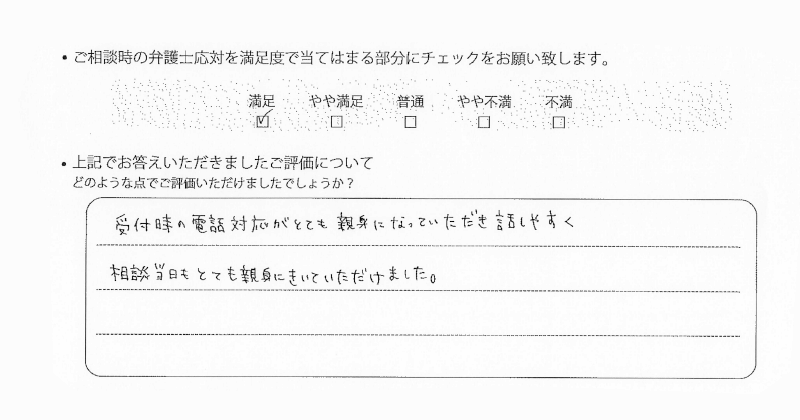 ・ご相談時の弁護士応対を満足度で当てはまる部分にチェックをお願い致します。
満足 やや満足 普通 やや不満 不満
☑ □ □ □ □
・上記でお答えいただきましたご評価について
どのような点でご評価いただけましたでしょうか？
受付時の電話対応がとても親身になっていただき話しやすく
相談当日もとても親身にきいていただけました。